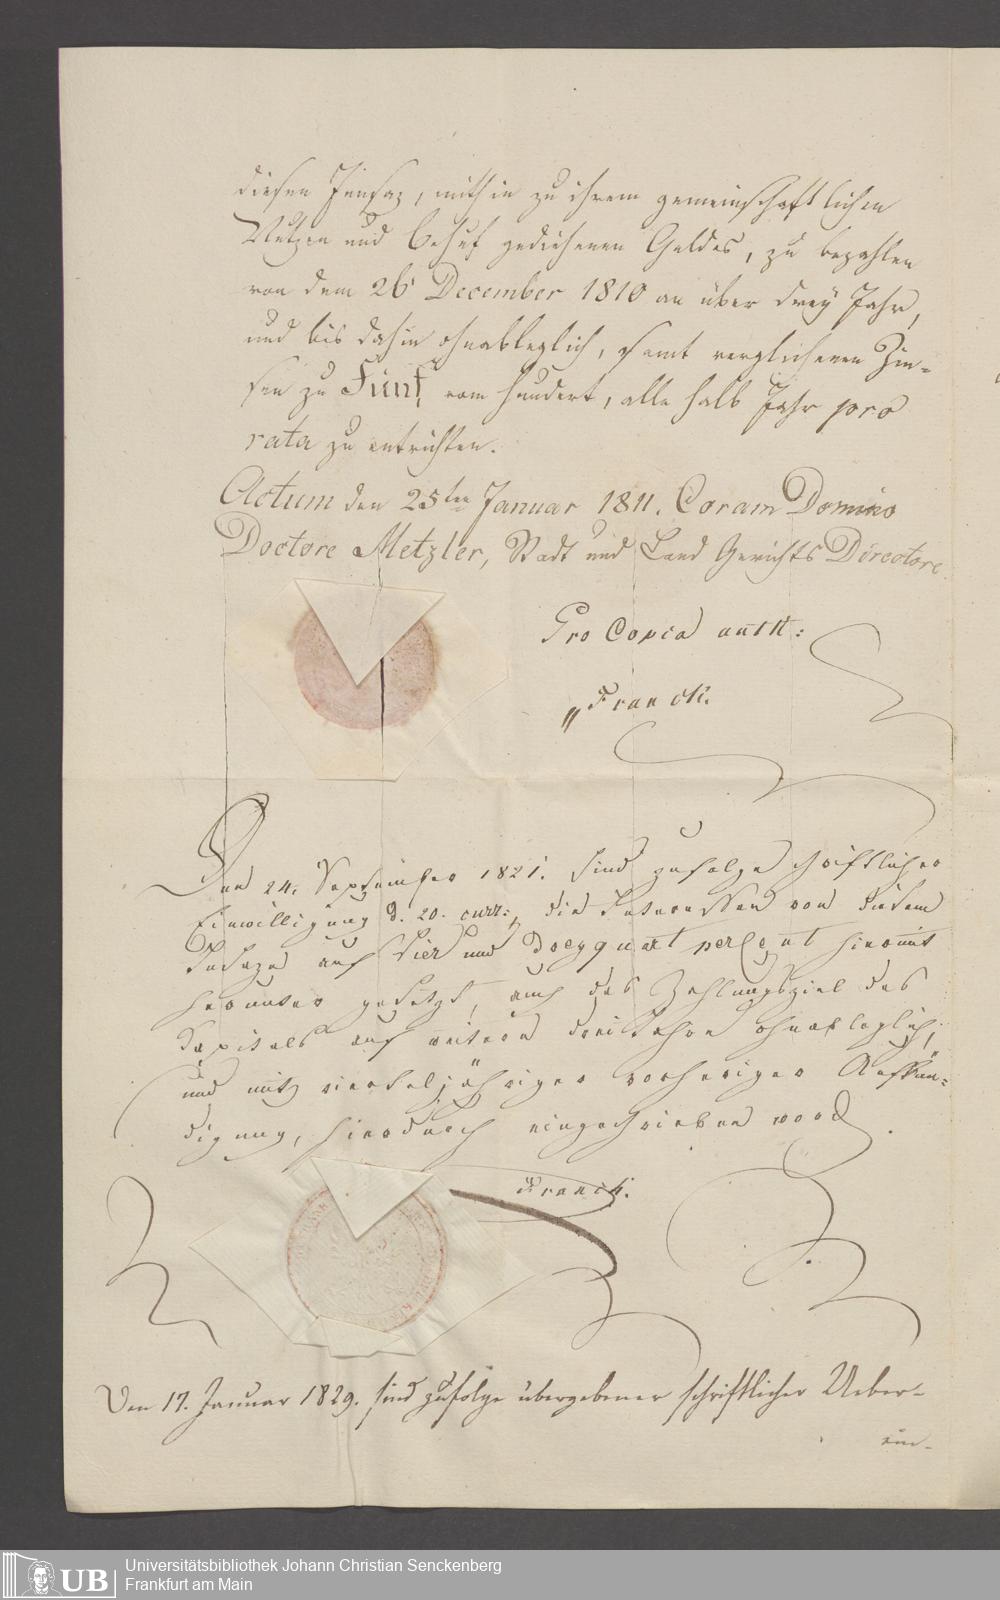 diesen Innsaz, mithin zu ihrem gemeinschaftlichen
Nutzen und Behuf gediehenen Geldes, zu bezahlen
von dem 26 December 1810 an über drey Jahr,
und bis dahin ohnableglich, samt verglichenen Zin-
sen zu Fünf vom hundert, alle halb Jahr pro
rata zu entrichten.
Actum den 25ten Januar 1811. Coram Domino
Doctore Metzler, Stadt und Land Gerichts Directore
Pro Copia auth:
Franck.
Den 24. September 1821. sind zufolge schriftlicher
Einwilligung d. 20. curr:, die Interessen von diesem
Insaze auf Vier und Dreyquart perCent hiermit
herunter gesetzt, auch das Zahlungsziel des
Kapitals auf weitere drei Jahre ohnableglich,
und mit vierteljähriger vorheriger Aufkün-
digung, hierdurch eingeschrieben word
Franck.
Den 17. Januar 1829. sind zufolge übergebener schriftlicher Ueber-
ein-
UB
Universitätsbibliothek Johann Christian Senckenberg
Frankfurt am Main